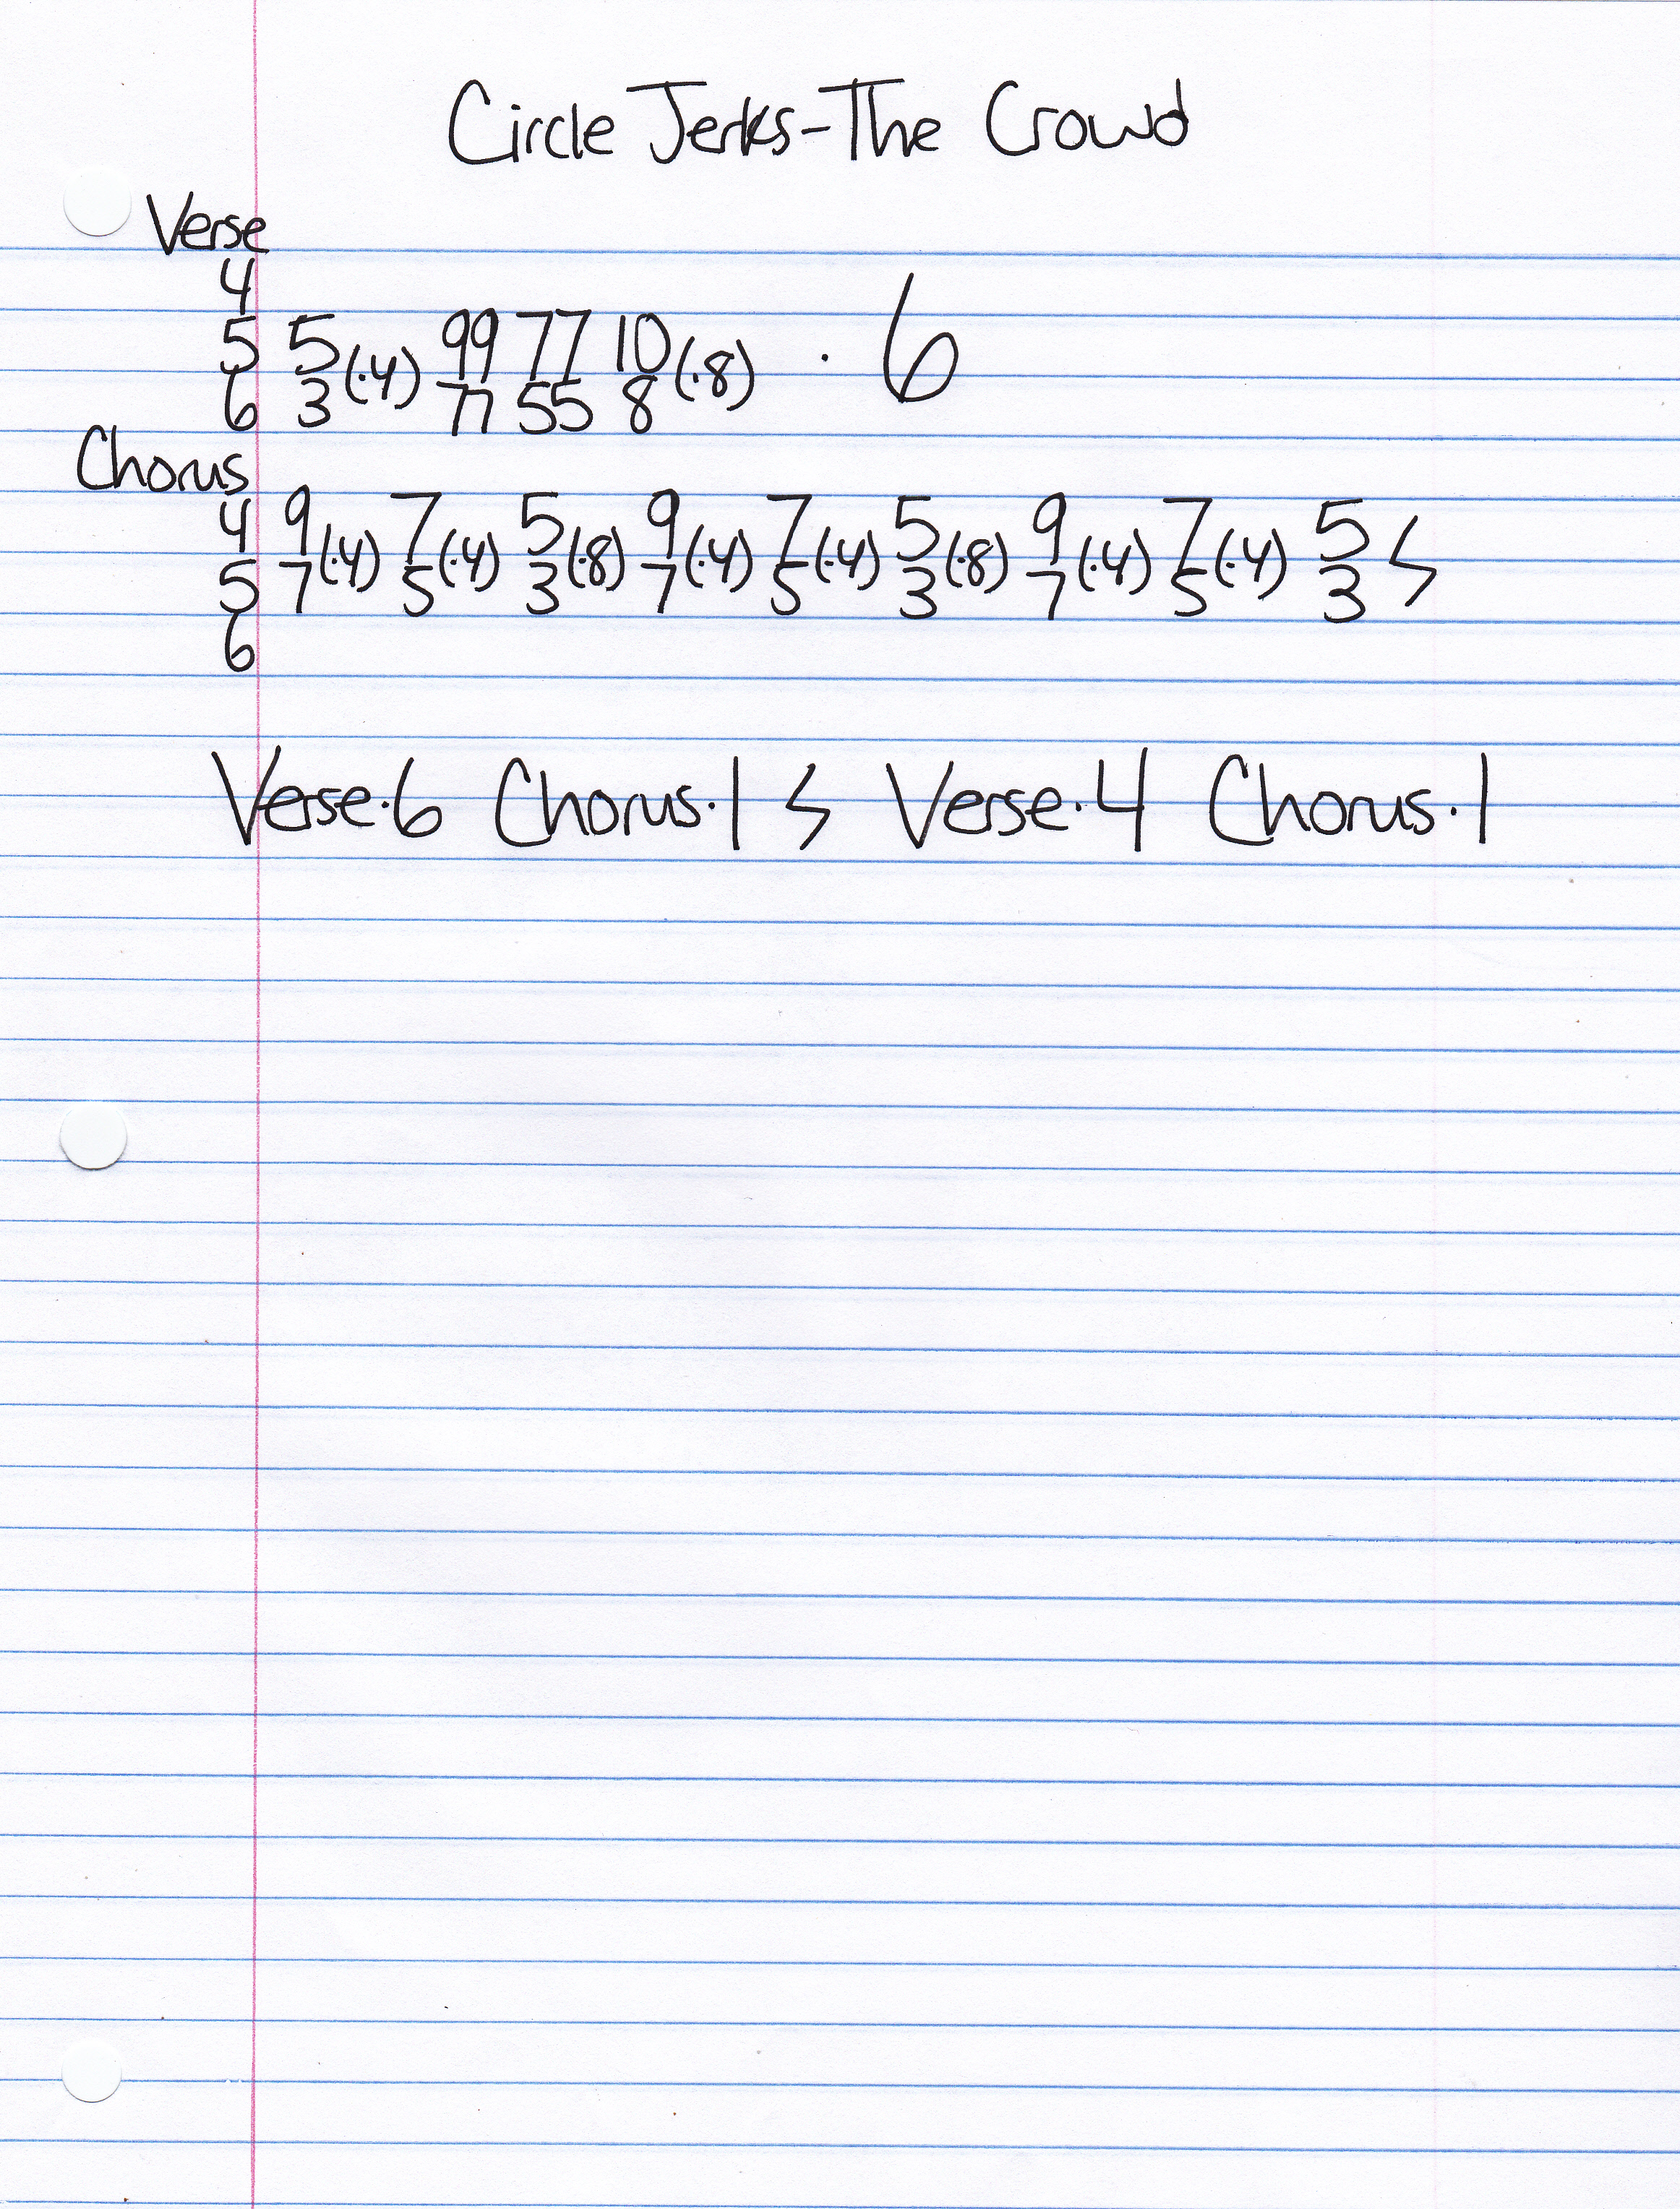 Circle Jerks-The Crowd
Verse
4
5 5(·4) 99 77 10(·8) · 6
6 3 77 55 8
Chorus
4 9(·4) 7(·4) 5(·8) 9(·4) 7(·4) 5(·8) 9(·4) 7(·4) 5 ϟ
5 7 5 3 7 5 3 7 5 3
6
Verse·6 Chorus·1 ϟ Verse·4 Chorus·1